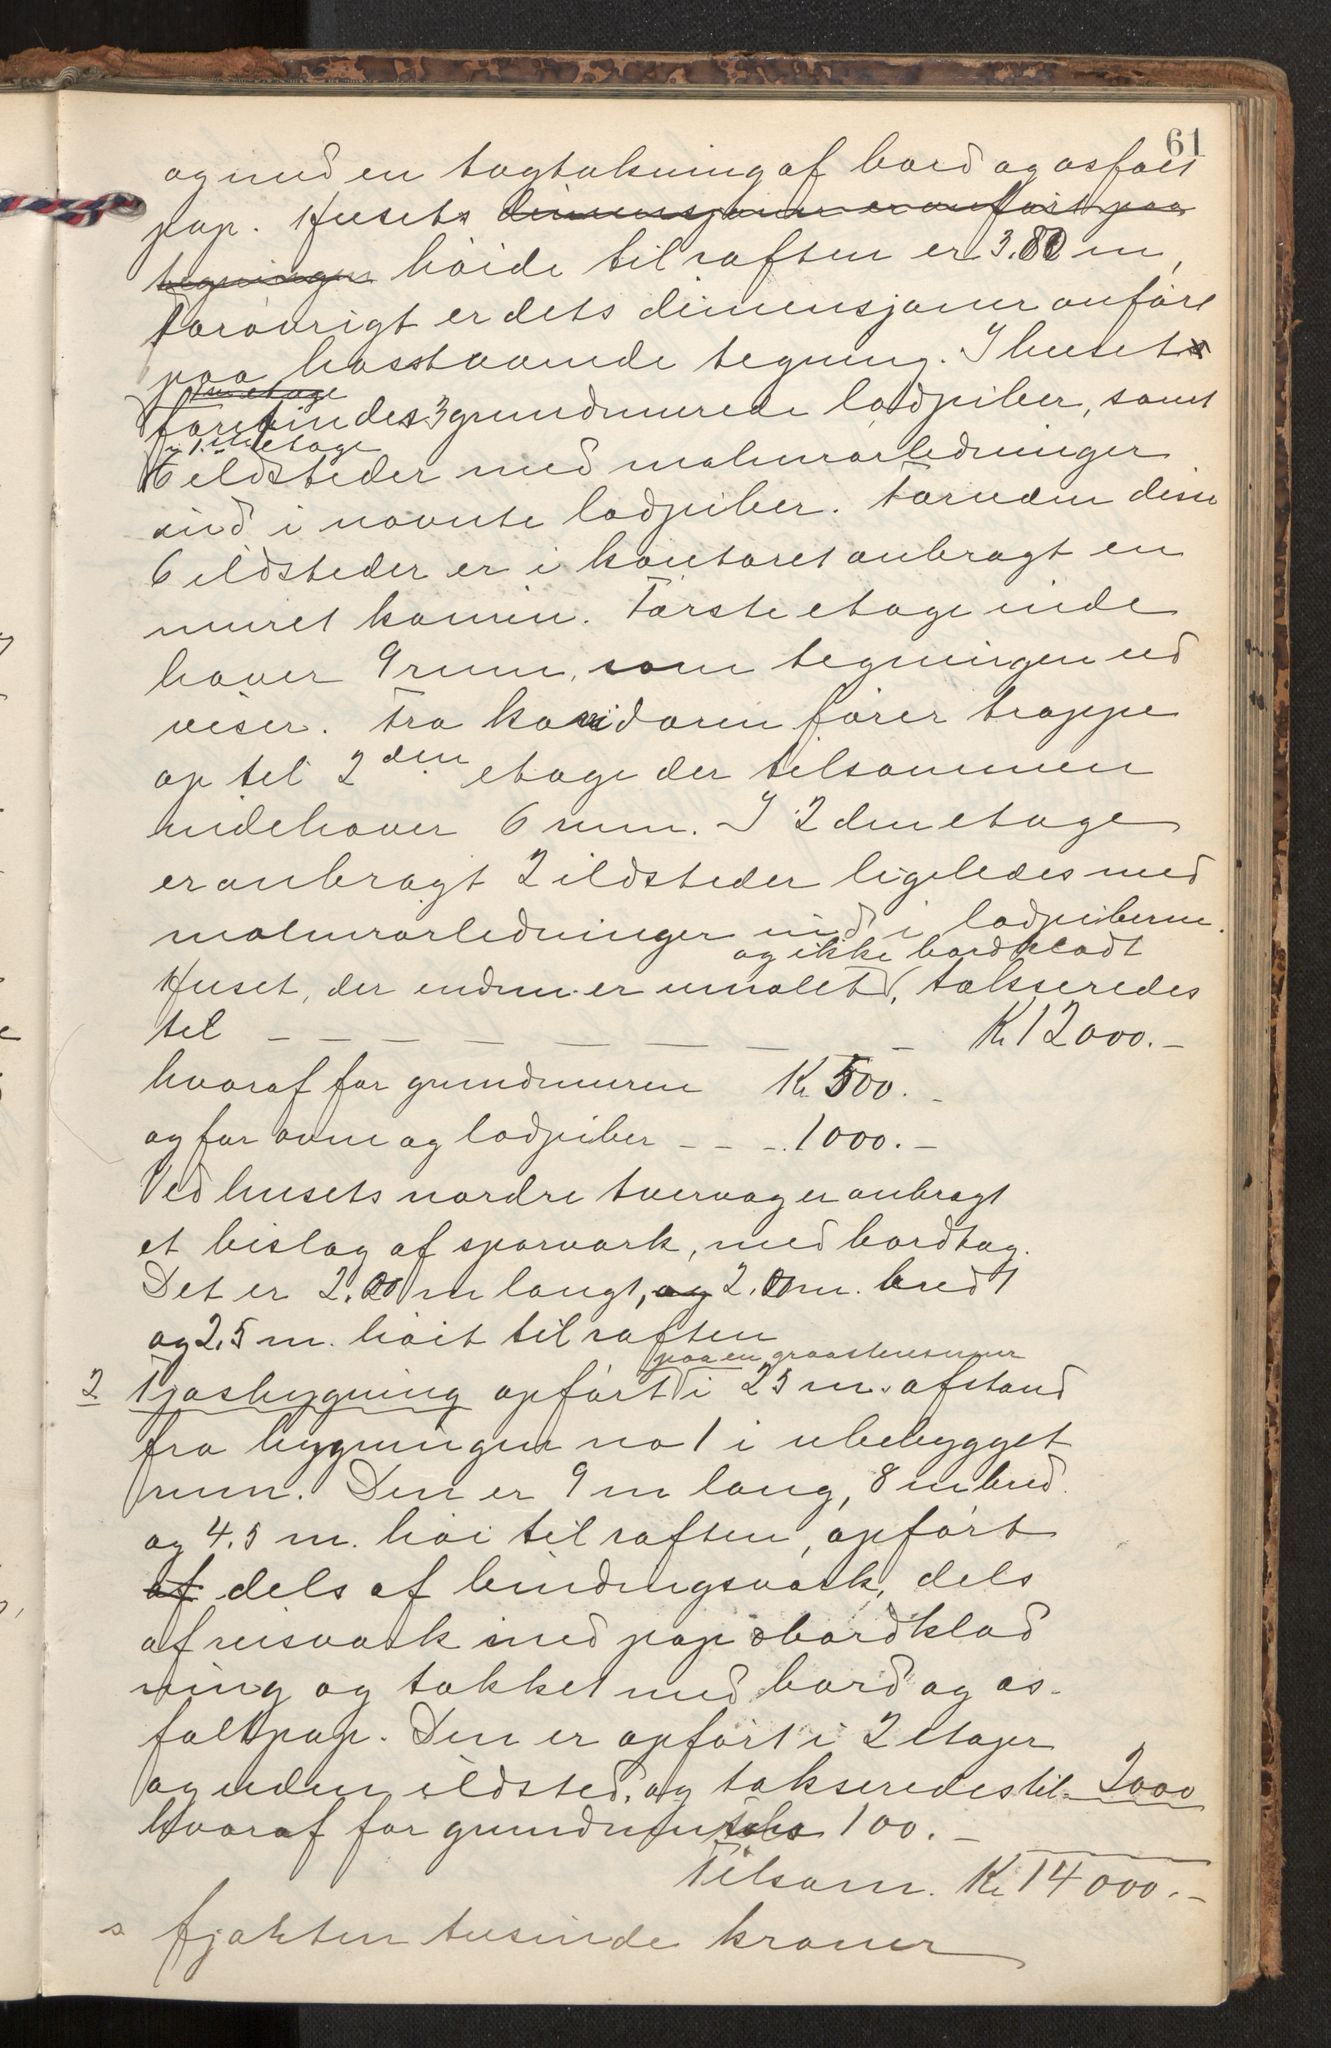 61
og med en tagtækning af bord og asfalt
pap. Husets dimensjoner er anført paa
tegningen høide til raften er 3.80 m,
Forøvrigt er dets dimensjoner anført
paa hosstaaende tegning. I huset
1ste etage
forefindes 3 grundmurede ladpiber, samt
i 1ste etage
6 ildsteder med malmrørledninger
ind i nævnte ladpiber. Foruden disse
6 ildsteder er i kontoret anbragt en
muret kamin. Første etage inde
haver 9 rum, som tegningen ud
viser. Fra koridoren fører trappe
op til 2den etage der tilsammen
indehaver 6 rum. I 2den etage
er anbragt 2 ildsteder ligeledes med
malmrørledninger ind i ladpiberne.
og ikke bordklædt
Huset, der endnu er umalet, takseredes
til — — — — — — — — — Kr 12000.–
hvoraf for grundmuren Kr 500.–
og for ovne og ladpiber – – – 1000.–
Ved husets nordre tvervæg er anbragt
et bislag af sparværk, med bordtag.
Det er 2.00 m langt, og 2.00 m. bredt
og 2.5 m. høit til raften
paa en graastensmur
2 Fjøsbygning opført i 25 m. afstand
fra bygningen no 1 i ubebygget
rum. Den er 9 m lang, 8 m bred.
og 4.5 m. høi til raften, opført
af dels af bindingsværk, dels
af reisværk med pap o bordklæd
ning og tækket med bord og as-
faltpap. Den er opført i 2 etager
og uden ildsted, og takseredes til 2000
hvoraf for grundmuren 100.–
Tilsam. Kr 14000.–
s fjorten tusinde kroner